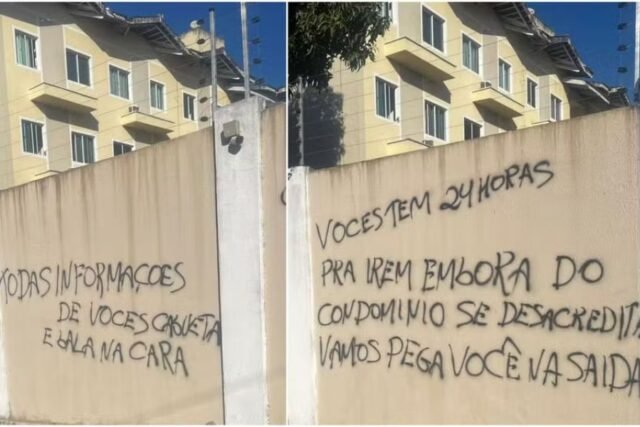 TODAS INFORMAÇOES
DE VOCES CAGUETA
E BALA NA CARA
VOCES TEM 24 HORAS
PRA IREM EMBORA DO
CONDOMINIO SE DESACREDITA
VAMOS PEGA VOCÊ NA SAIDA